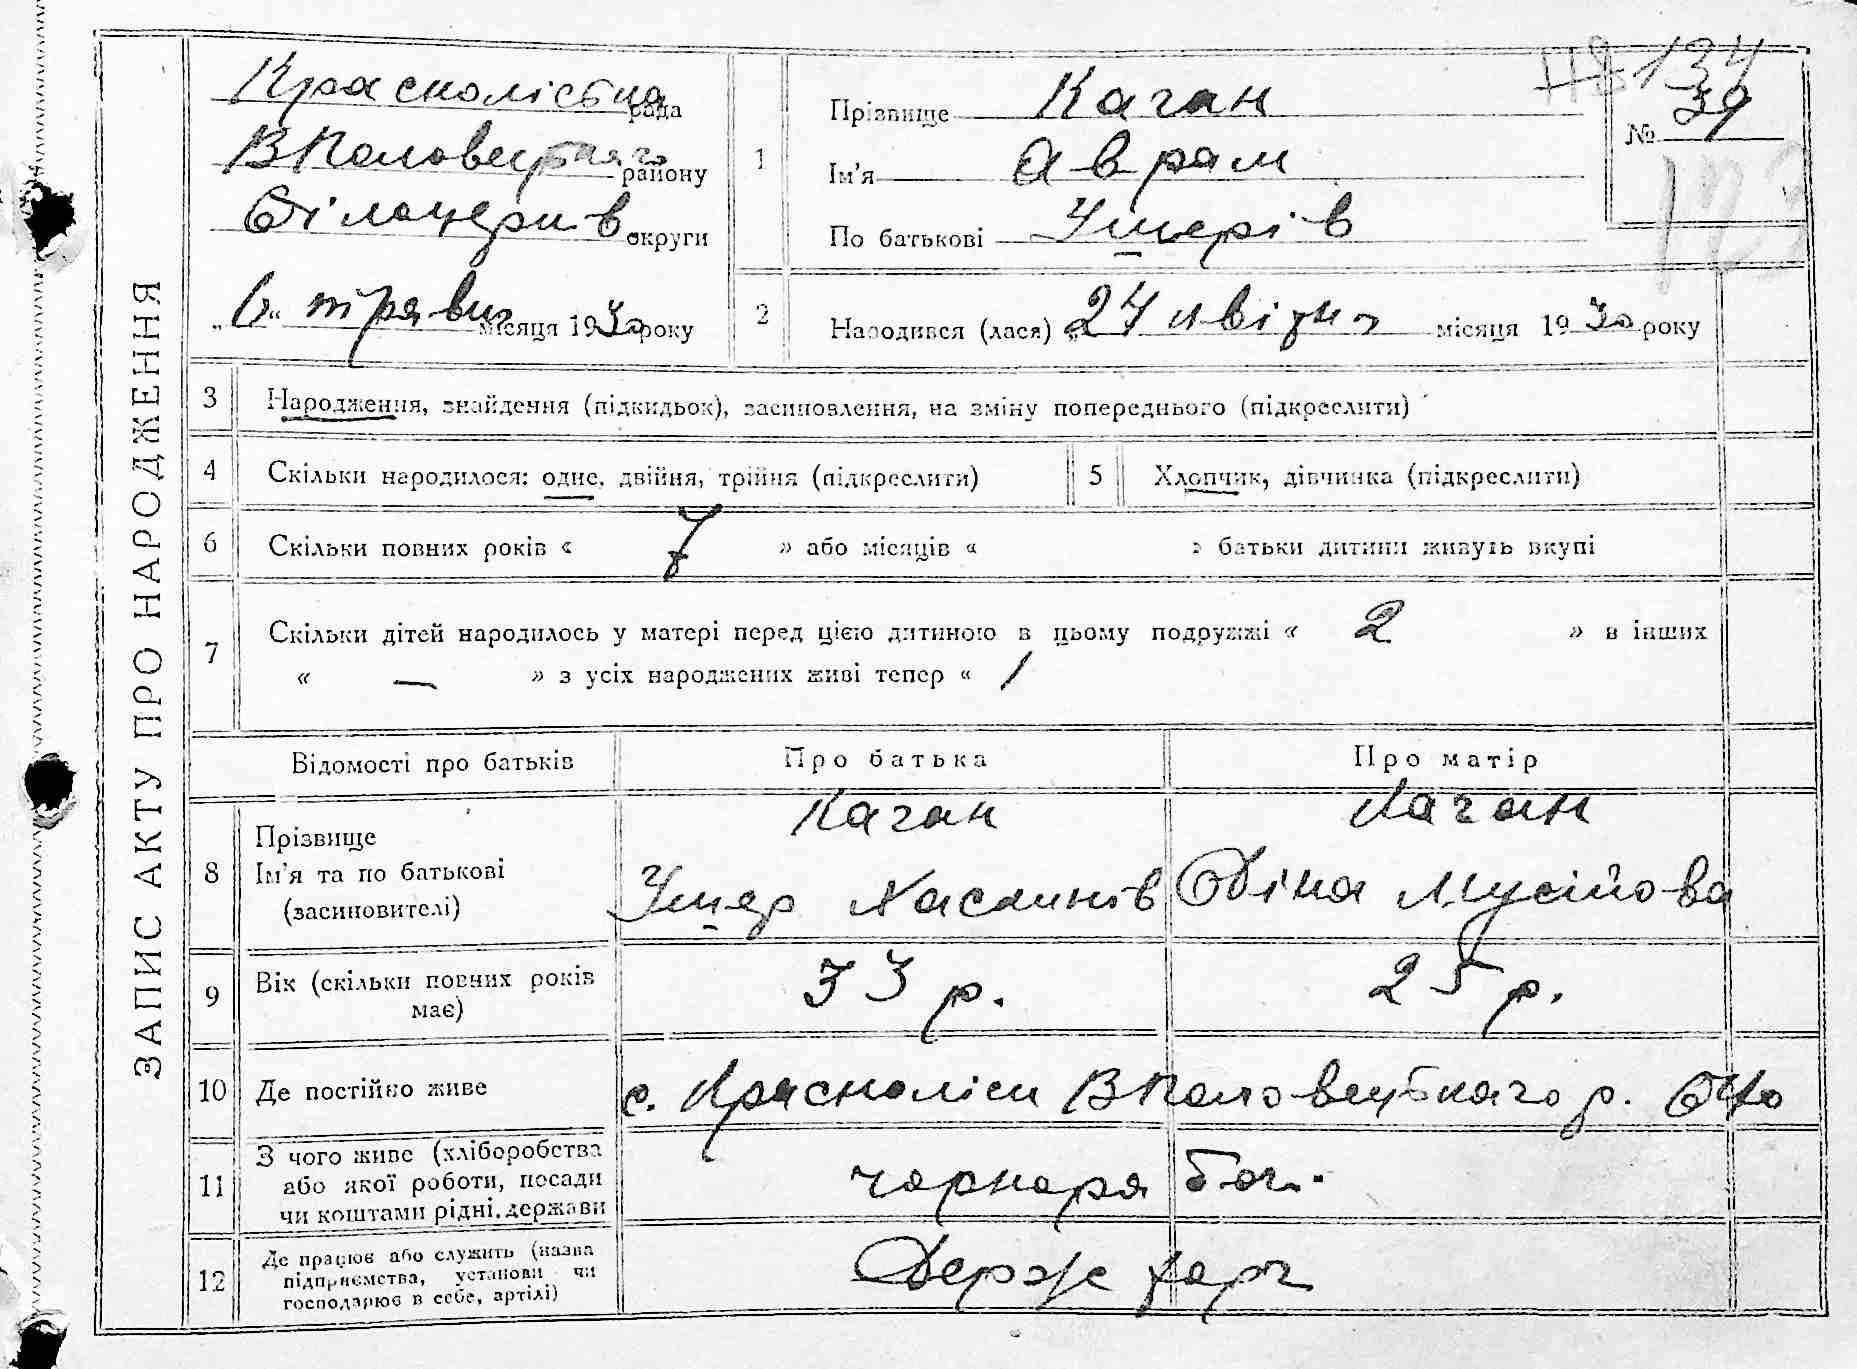 ЗАПИС АКТУ ПРО НАРОДЖЕННЯ
Краснолістна рада
ВПоловецького району
Білоцерків округи
„6“ травня місяця 1930 року
1
Прізвище Каган
Ім'я Аврам
По батькові Ушерів
118 134
№ 39
2
Народився (лася) „24 квітня місяця 1930 року
3 Народження, знайдення (підкидьок), засиновлення, на зміну попереднього (підкреслити)
4 Скільки народилося: одне, двійня, трійня (підкреслити)
5 Хлопчик, дівчинка (підкреслити)
6 Скільки повних років « 7 » або місяців « » батьки дитини живуть вкупі
7 Скільки дітей народилось у матері перед цією дитиною в цьому подружжі « 2 » в інших
« — » з усіх народжених живі тепер « 1
Відомості про батьків Про батька Про матір
8 Прізвище
Ім'я та по батькові
(засиновителі)
Каган
Ушер
Каган
Діна Мусійова
9 Вік (скільки повних років
має)
33 р. 25 р.
10 Де постійно живе с. Краснолісы ВПоловецбкаго р.
11 З чого живе (хліборобства
або якої роботи, посади
чи коштами рідні, держави
12 Де працює або служить (назва
підприємства, установи чи
господарює в себе, артілі)